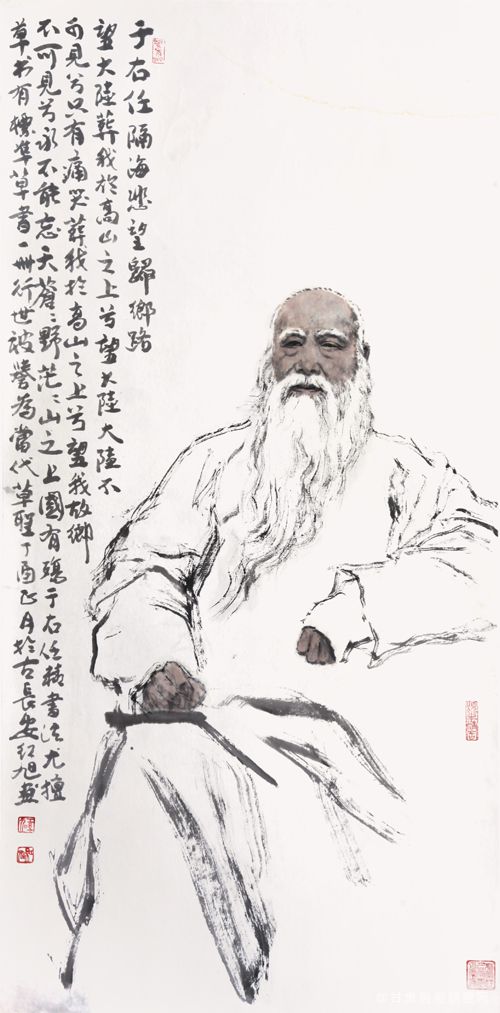 于右任隔海悲望歸鄉路
望大陸葬我於高山之上兮望大陸大陸不
可見兮只有痛哭葬我於高山之上兮望我故鄉
不可見兮永不能忘天蒼蒼野茫茫山之上國有殤于右任精書法尤擅
草书有標準草書一冊行世被譽為當代草聖丁酉正月於古長安紅旭畫